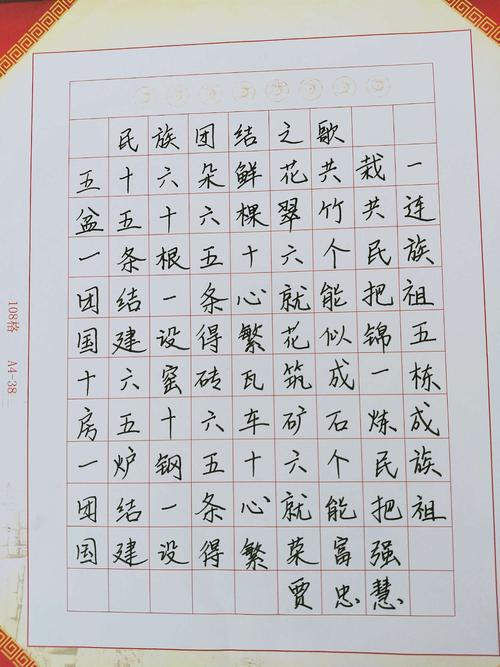 民族团结之歌
五十六朵鲜花共栽一
盆五十六棵翠竹共连
一条根五十六个民族
团结一条心就能把祖
国建设得繁花似锦五
十六窑砖瓦筑成一栋
房五十六车矿石炼成
一炉钢五十六个民族
团结一条心就能把祖
国建设得繁荣富强
贾忠慧
108格 A4-38